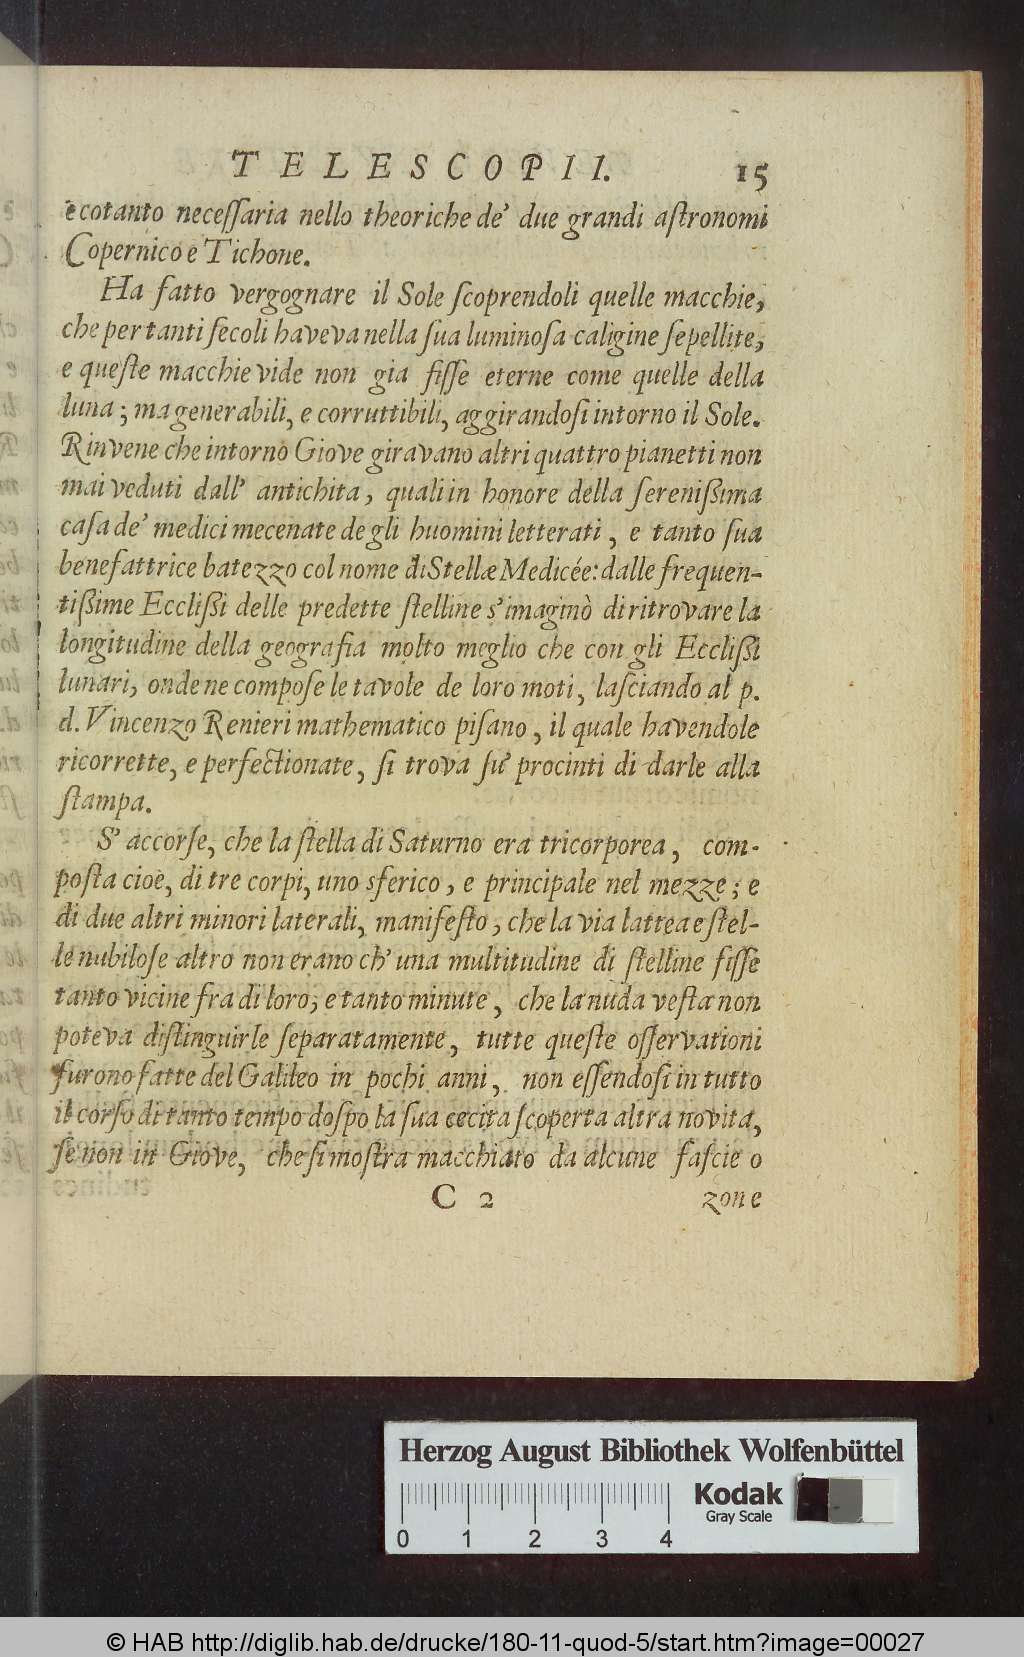 TELESCOPII. 15
è cotanto necessaria nello theoriche de' due grandi astronomi
Copernico e Tichone.
Ha fatto vergognare il Sole scoprendoli quelle macchie,
che per tanti secoli haveva nella sua luminosa caligine sepellite,
e queste macchie vide non gia fisse eterne come quelle della
luna; ma generabili, e corruttibili, aggirandosi intorno il Sole.
Rinvene che intorno Giove giravano altri quattro pianetti non
mai veduti dall' antichita, quali in honore della serenißima
casa de' medici mecenate degli huomini letterati, e tanto sua
benefattrice batezzo col nome di Stellæ Medicée: dalle frequen-
tißime Ecclißi delle predette stelline s'imaginò di ritrovare la
longitudine della geografia molto meglio che con gli Ecclißi
lunari, onde ne compose le tavole de loro moti, lasciando al p.
d. Vincenzo Renieri mathematico pisano, il quale havendole
ricorrette, e perfectionate, si trova su' procinti di darle alla
stampa.
S' accorse, che la stella di Saturno era tricorporea, com-
posta cioè, di tre corpi, uno sferico, e principale nel mezze; e
di due altri minori laterali, manifesto, che la via lattea e stel-
le nubilose altro non erano ch' una multitudine di stelline fisse
tanto vicine fra di loro, e tanto minute, che la nuda vesta non
poteva distinguirle separatamente, tutte queste osservationi
furono fatte del Galileo in pochi anni, non essendosi in tutto
il corso di tanto tempo dospo la sua cecita scoperta altra novita,
se non in Giove, che si mostra macchiato da alcune fascie o
C 2 zone
Herzog August Bibliothek Wolfenbüttel
Kodak
Gray Scale
0 1 2 3 4
© HAB http://diglib.hab.de/drucke/180-11-quod-5/start.htm?image=00027